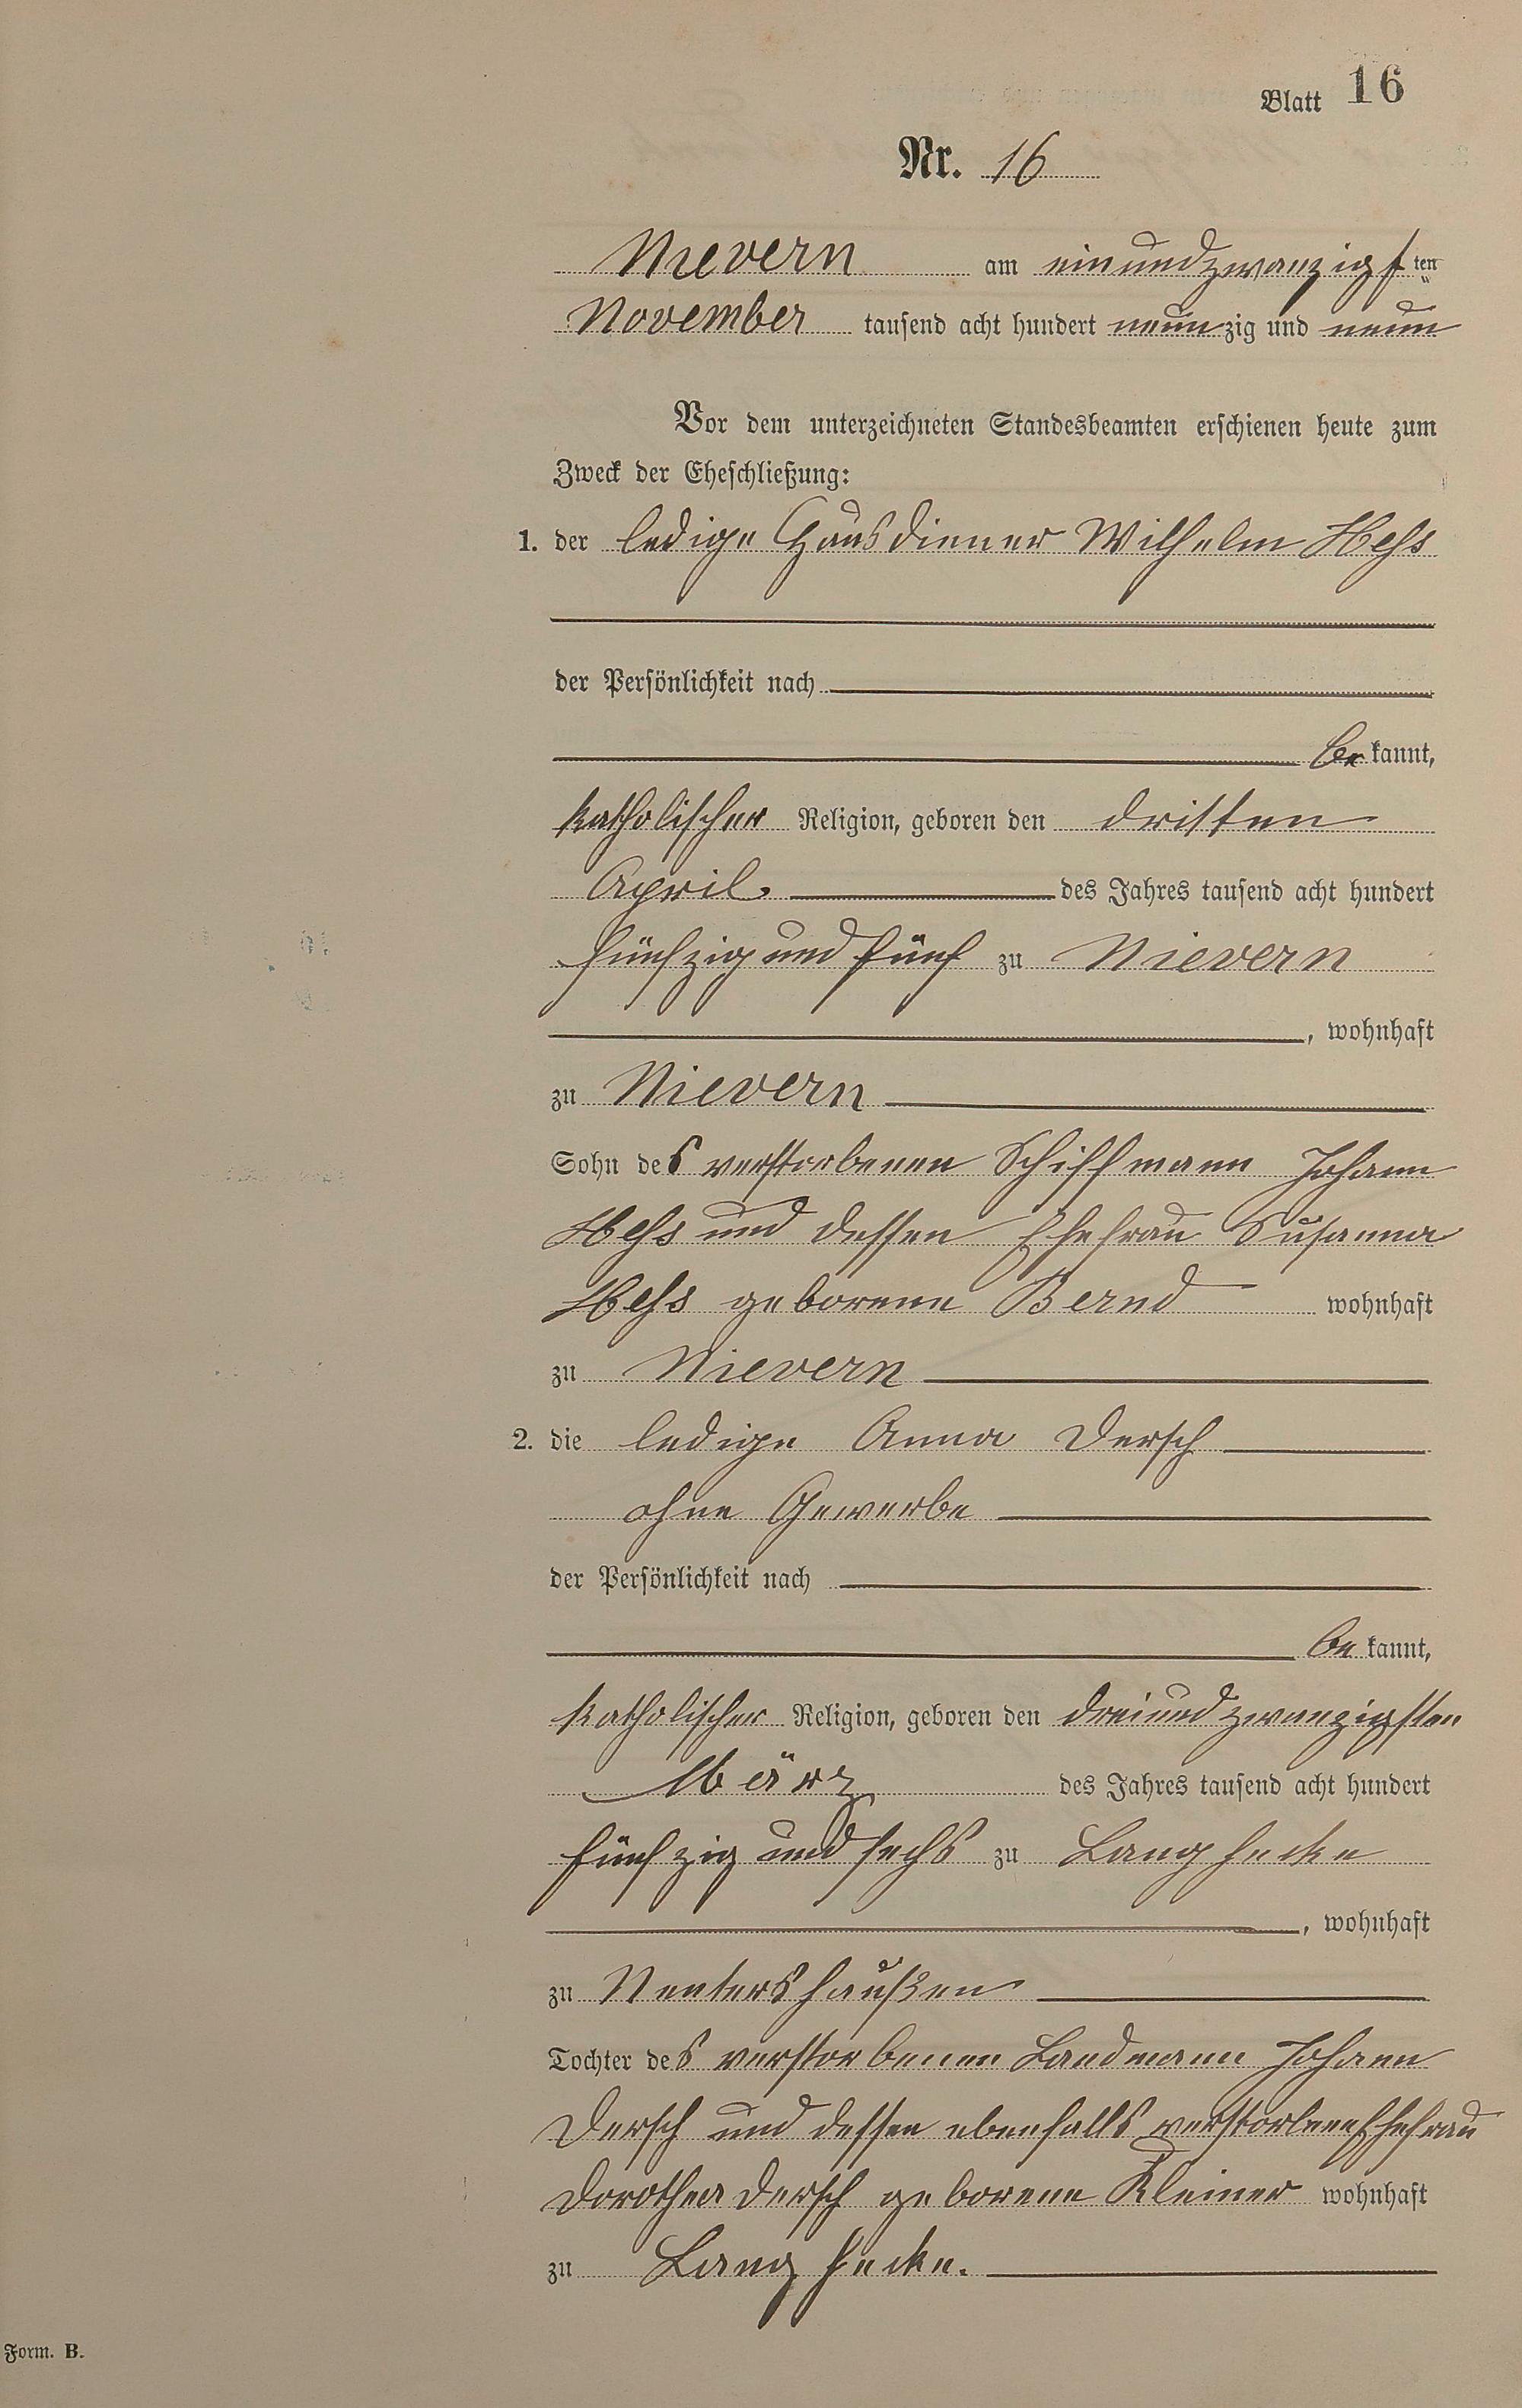 Blatt 16
Nr. 16
Nievern am einundzwanzigsten
November tausend acht hundert neunzig und neun
Vor dem unterzeichneten Standesbeamten erschienen heute zum
Zweck der Eheschließung:
1. der ledige Hausdiener Wilhelm Heſs
der Persönlichkeit nach
bekannt,
katholischer Religion, geboren den dritten
April des Jahres tausend acht hundert
fünfzig und fünf zu Nievern
, wohnhaft
zu Nievern
Sohn des verstorbenen Schiffmann Johann
Heſs und dessen Ehefrau Susanna
Heſs geborene Bernd wohnhaft
zu Nievern
2. die ledige Anna Dersch
ohne Gewerbe
der Persönlichkeit nach
bekannt,
katholischer Religion, geboren den dreiundzwanzigsten
März des Jahres tausend acht hundert
fünfzig und sechs zu Langhecke
, wohnhaft
zu Nentershaußen
Tochter des verstorbenen Landmann Johann
Dersch und dessen ebenfalls verstorbene Ehefrau
Dorothea Dersch geborene Kleiner wohnhaft
zu Langhecke.
Form. B.